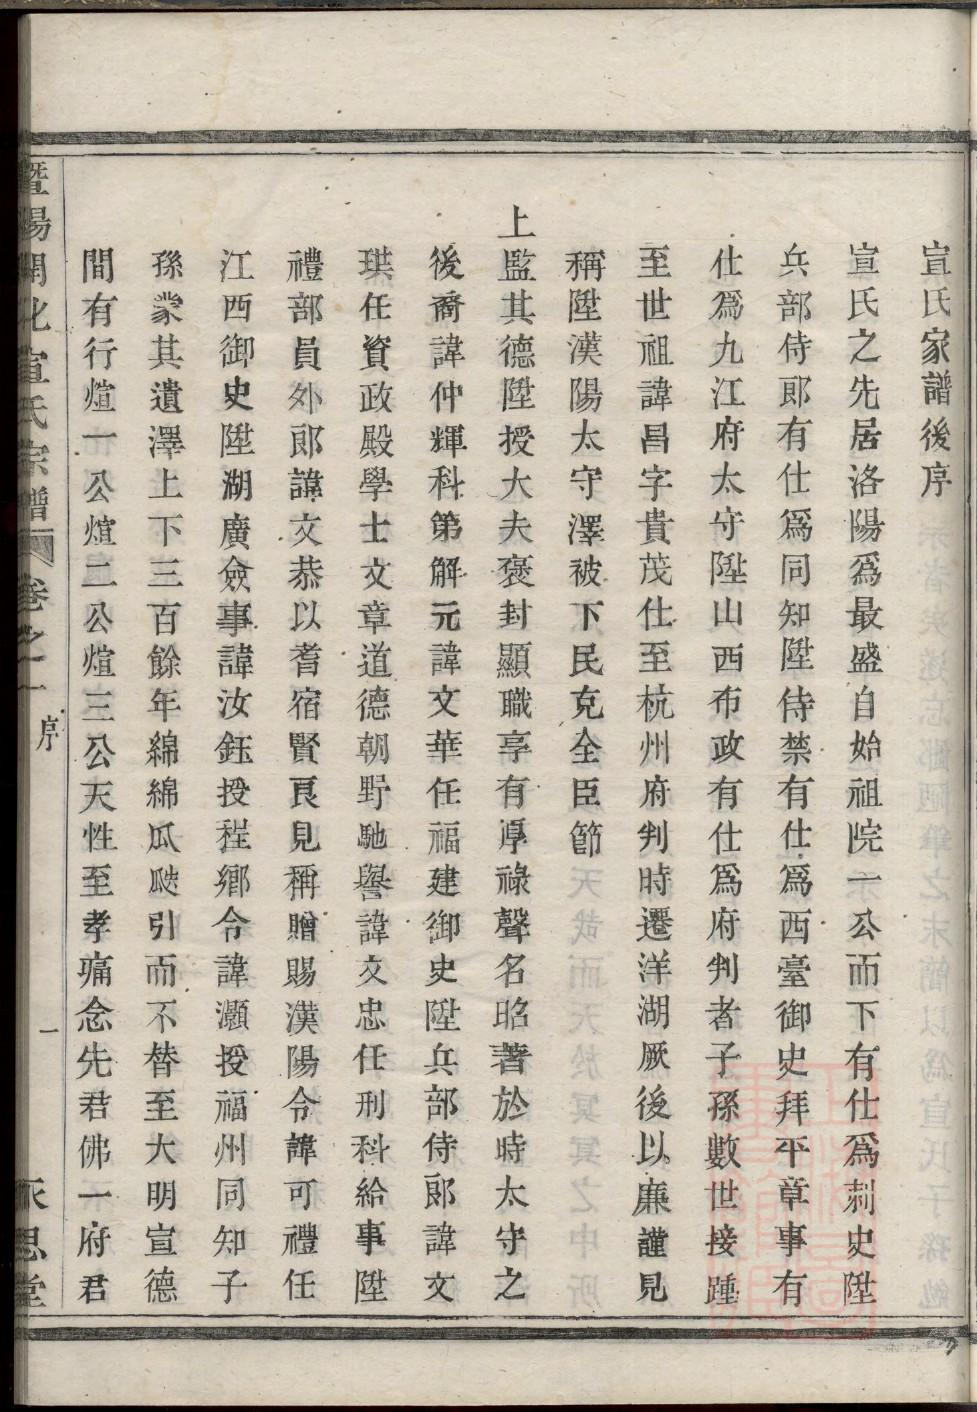 宣氏家譜後序
宣氏之先居洛陽爲最盛自始祖院一公而下有仕爲刺史陞
兵部侍郎有仕爲同知陞侍禁有仕爲西臺御史拜平章事有
仕爲九江府太守陞山西布政有仕爲府判者子孫數世接踵
至世祖諱昌字貴茂仕至杭州府判時遷洋湖厥後以廉謹見
稱陞漢陽太守澤被下民克全臣節
上監其德陞授大夫褒封顯職享有厚祿聲名昭著於時太守之
後裔諱仲輝科第解元諱文華任福建御史陞兵部侍郎諱文
珙任資政殿學士文章道德朝野馳譽諱文忠任刑科給事陞
禮部員外郎諱文恭以耆宿賢良見稱贈賜漢陽令諱可禮任
江西御史陞湖廣僉事諱汝鈺授程鄉令諱灝授福州同知子
孫蒙其遺澤上下三百餘年綿綿瓜瓞引而不替至大明宣德
間有行煊一公煊二公煊三公天性至孝痛念先君佛一府君
暨陽開化宣氏宗譜 卷之一 序 一 永思堂